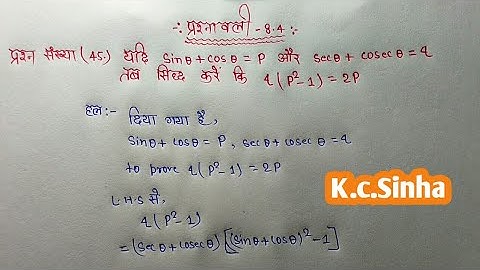 ∴ प्रश्नावली - 8.4 ∴
प्रश्न संख्या (45.) यदि sinθ + cosθ = P और secθ + cosecθ = q
तब सिद्ध करें कि q(P²-1) = 2P
हल:- दिया गया है,
sinθ + cosθ = P, secθ + cosecθ = q
to prove q(P²-1) = 2P
L.H.S से,
q(P²-1)
= (secθ + cosecθ) [(sinθ + cosθ)² - 1]
K.c.Sinha